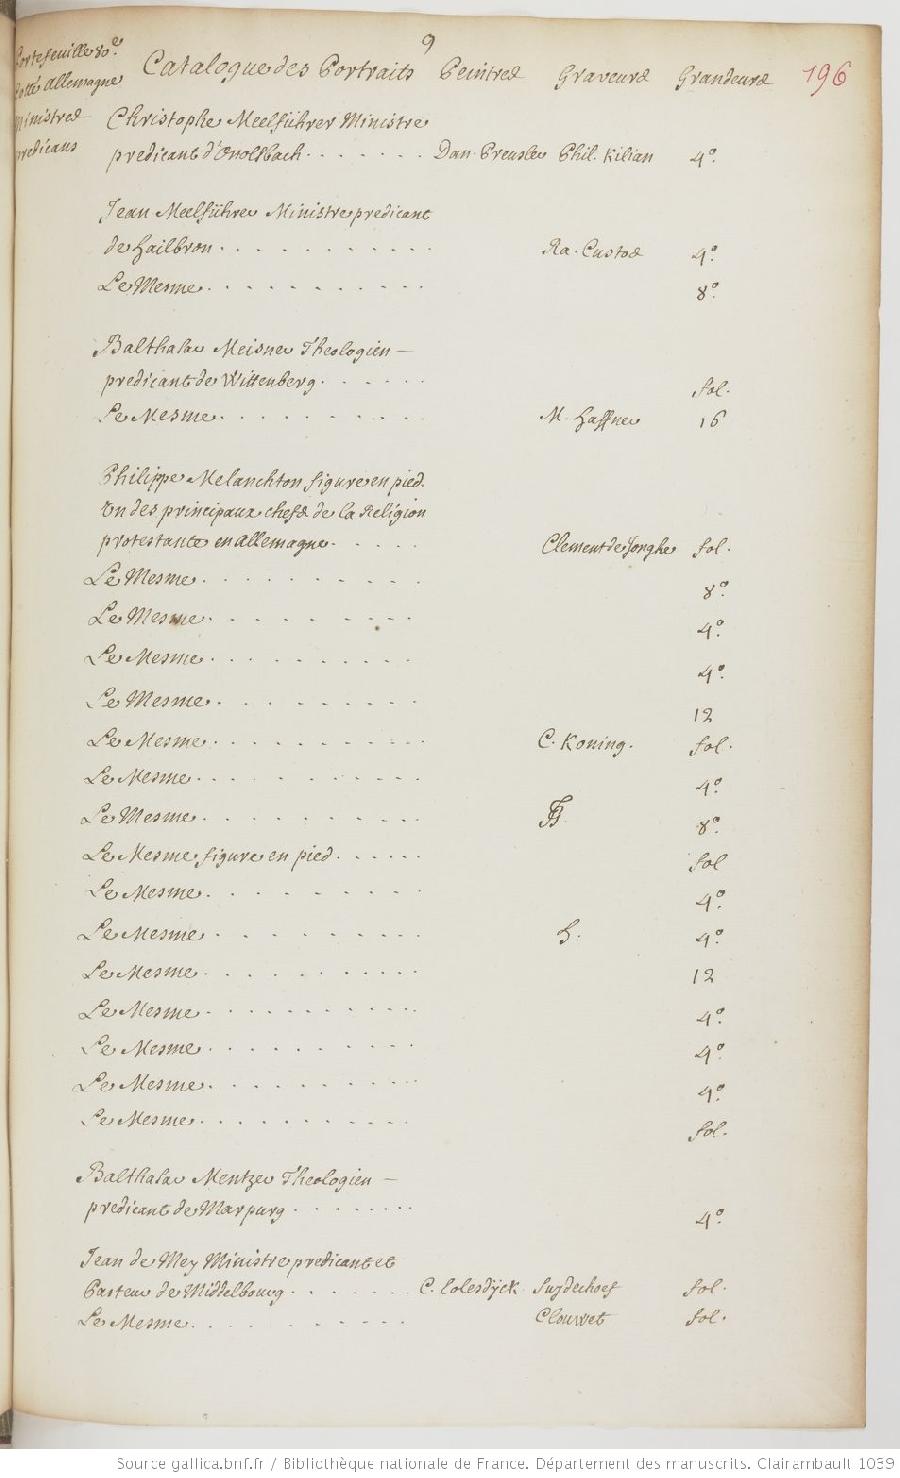 9
portefeuille 80e. Catalogue des Portraits Peintres Graveurs Grandeurs 196
Cotté Allemagne
Ministres
predicans
Christophe Meelführer Ministre
predicant d'Onolsbach . . . . . . . Dan. Preusler Phil. Kilian 4º.
Jean Meelführer Ministre predicant
de Hailbron . . . . . . . . . . . Ra. Custos 4º.
Le Mesme . . . . . . . . . . . 8º
Balthasar Meisner Theologien —
predicant de Wittenberg . . . . . . fol.
Le Mesme . . . . . . . . . . . M. Haffner 16
Philippe Melanchton figure en pied.
Un des principaux chefs de la Religion
protestante en allemagne . . . . . Clement de Jonghe fol.
Le Mesme . . . . . . . . . . 8º.
Le Mesme . . . . . . . . . . 4º.
Le Mesme . . . . . . . . . . 4º.
Le Mesme . . . . . . . . . . 12
Le Mesme . . . . . . . . . . . C. Koning. fol.
Le Mesme . . . . . . . . . . . 4º.
Le Mesme . . . . . . . . . . 8º.
Le Mesme figure en pied . . . . . fol
Le Mesme . . . . . . . . . . 4º.
Le Mesme . . . . . . . . . . H. 4º.
Le Mesme . . . . . . . . . . 12
Le Mesme . . . . . . . . . . . 4º.
Le Mesme . . . . . . . . . . 4º.
Le Mesme . . . . . . . . . . 4º.
Le Mesme . . . . . . . . . . fol.
Balthasar Mentzer Theologien —
predicant de Marpurg . . . . . . . . 4º.
Jean de Mey Ministre predicant et
Pasteur de Middelbourg . . . . . . . C. Eolesdyck Suyderhoef fol.
Le Mesme . . . . . . . . . . . Clouwet fol.
Source gallica.bnf.fr / Bibliothèque nationale de France. Département des manuscrits. Clairambault 1039